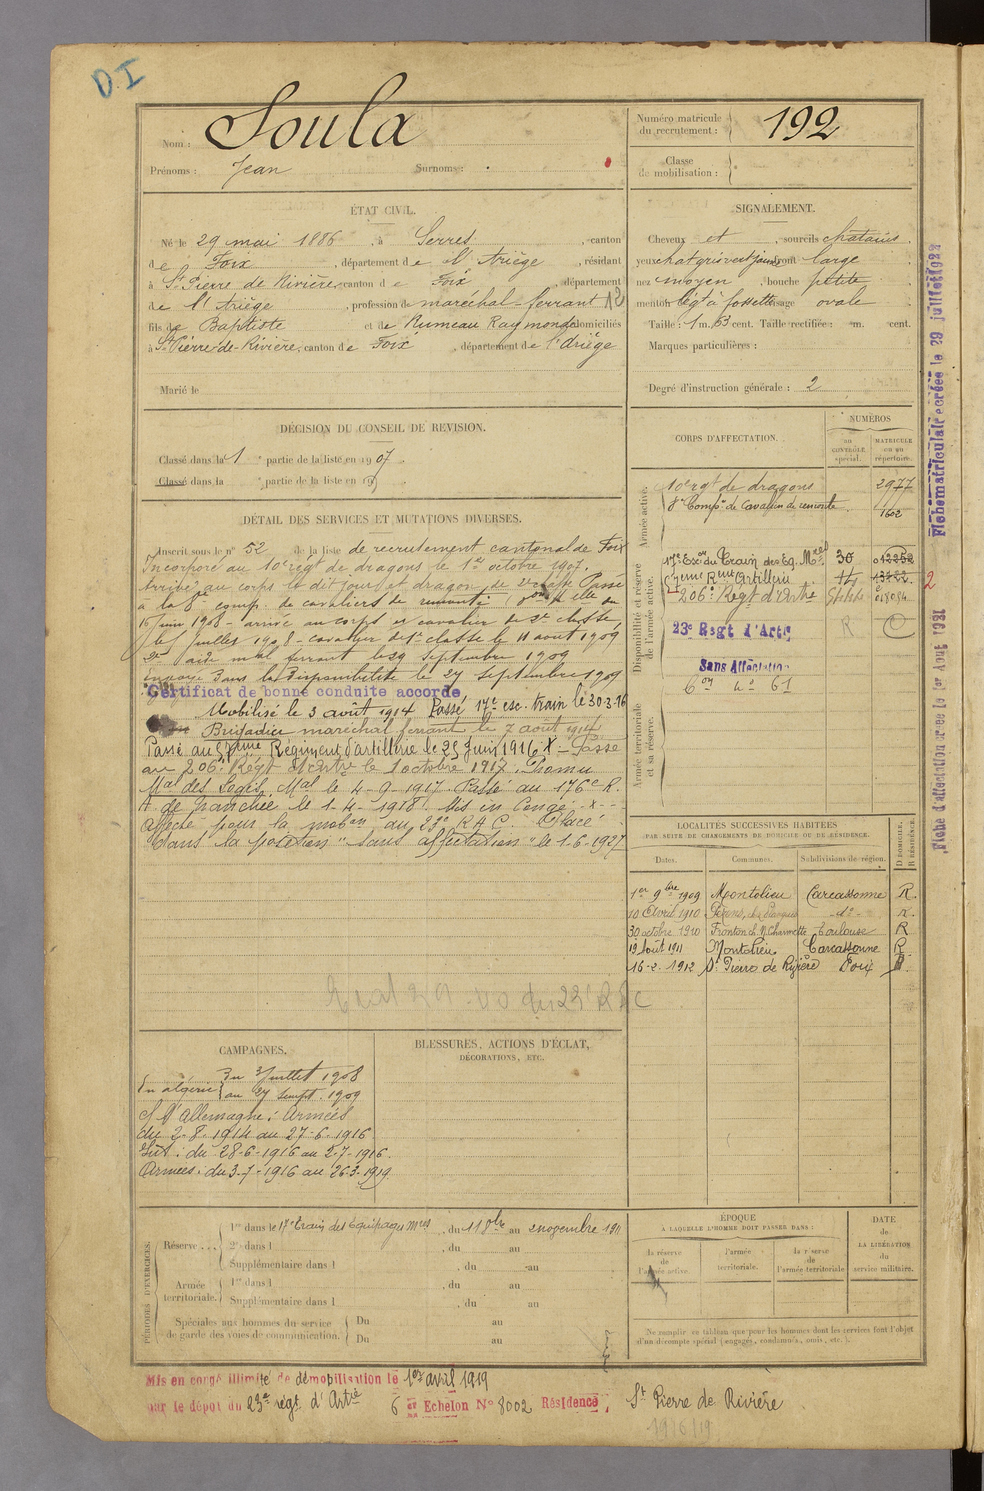 D.I
Nom : Soula
Prénoms : Jean Surnoms :
Numéro matricule du recrutement : 192
Classe de mobilisation :
ÉTAT CIVIL.
Né le 29 mai 1886, à Serres, canton
de Foix, département de l'Ariège, résidant
à St Pierre de Rivière, canton de Foix, département
de l'Ariège, profession de maréchal-ferrant 12
fils de Baptiste et de Rumeau Raymonde domiciliés
à St Pierre-de-Rivière, canton de Foix, département de l'Ariège
Marié le
SIGNALEMENT.
Cheveux et, sourcils chatains.
yeux chat gris verd jaune front large
nez moyen, bouche petite
menton lég t à fossette visage ovale
Taille : 1 m. 63 cent. Taille rectifiée : m. cent.
Marques particulières :
Degré d'instruction générale : 2
DÉCISION DU CONSEIL DE REVISION.
Classé dans la 1e partie de la liste en 1907.
Classé dans la e partie de la liste en 19
DÉTAIL DES SERVICES ET MUTATIONS DIVERSES.
Inscrit sous le n° 52 de la liste de recrutement cantonal de Foix
Incorporé au 10e régt de dragons le 1er octobre 1907.
Arrivé au corps le dit jour et dragon de 2e classe Passé
à la 8e comp. de cavaliers de remonte
16 juin 1908 - arrivé au corps et cavalier de 2e classe,
le 5 juillet 1908 - cavalier de 1re classe le 11 aout 1909
2e aide mal ferrant le 29 septembre 1909
Envoyé dans la disponibilité le 27 septembre 1909
Certificat de bonne conduite accordé
Mobilisé le 3 août 1914 Passé 17e esc. train le 30-3-16
Brigadier maréchal ferrant le 7 août 1914
Passé au 57ème Régiment d'artillerie le 25 Juin 1916 X - Passé
au 206e Régt d'Artie le 1 octobre 1917. Promu
Mal des Logis Mal le 4-9-1917. Passé au 176e R.
A. de tranchée le 1-4-1918. Mis en Congé -x-
affecté pour la mobon au 23e R.A.C. Placé
dans la position "sans affectation" le 1-6-1927
CORPS D'AFFECTATION.
NUMÉROS
AU CONTRÔLE spécial.
MATRICULE ou au répertoire.
Armée active.
10e rgt de dragons 2977
8e Compie de Cavaliers de remonte 1602
Disponibilité et réserve de l'armée active.
17e Escon du Train des Eq. Mres 30 012252
57eme Rgt Artillerie
206e Régt d'Artie
R
23e Régt d'Artie
Sans Affectation
2
Armée territoriale et sa réserve.
LOCALITÉS SUCCESSIVES HABITÉES
PAR SUITE DE CHANGEMENTS DE DOMICILE OU DE RÉSIDENCE.
Dates. Communes. Subdivisions de région. D DOMICILE. R RÉSIDENCE.
1er 9bre 1909 Montolieu Carcassonne R.
10 Avril 1910 -do- R.
30 octobre 1910 Fronton ch. Mr Charmette Toulouse R
19 Août 1911 Montolieu Carcassonne R
16-2-1912 St Pierre de Rivière Foix R.
CAMPAGNES.
En algérie du 3 Juillet 1908
au 27 Sempt. 1909
C/ l'Allemagne : Armées
du 2-8-1914 au 27-6-1916
Int : du 28-6-1916 au 2-7-1916.
Armées : du 3-7-1916 au 26-3-1919
BLESSURES, ACTIONS D'ÉCLAT,
DÉCORATIONS, ETC.
PÉRIODES D'EXERCICES.
Réserve . . . 1re dans le 17e train des équipages mres, du 11 8bre au 2 novembre 1911
2e dans l , du au
Supplémentaire dans l , du au
Armée territoriale. 1re dans l , du au
Supplémentaire dans l , du au
Spéciales aux hommes du service de garde des voies de communication. Du au
Du au
ÉPOQUE
À LAQUELLE L'HOMME DOIT PASSER DANS :
la réserve de l'armée active.
l'armée territoriale.
la réserve de l'armée territoriale
DATE de LA LIBÉRATION du service militaire.
Ne remplir ce tableau que pour les hommes dont les services font l'objet
d'un décompte spécial (engagés, condamnés, omis, etc.).
Mis en congé illimité de démobilisation le 1er avril 1919
par le dépot du 23e régt d'Artie 6e Echelon N° 8002 Résidence : St Pierre de Rivière
Fiche matriculaire créée le 29 juillet 1922
Fiche d'affectation créée le 1er Août 1921